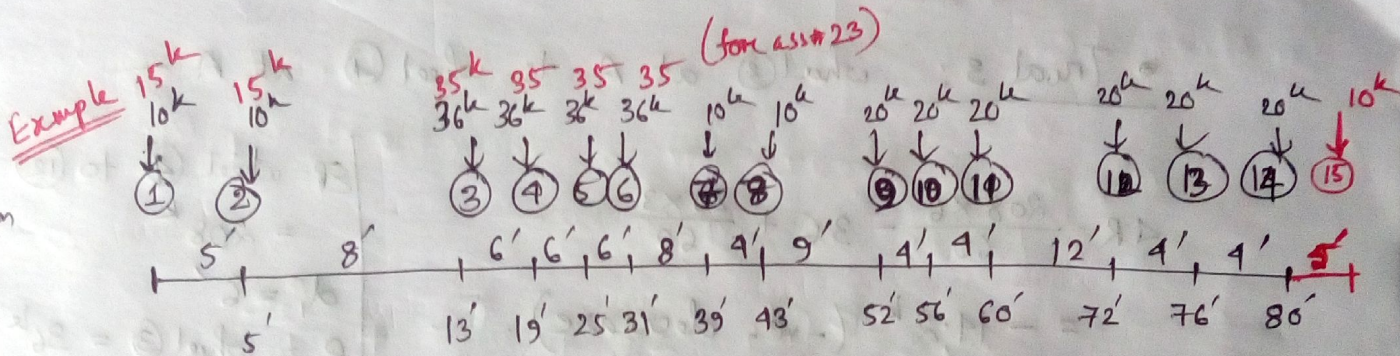 (for ass# 23)
Example 15k 15k 35k 35 35 35
10k 10k 36k 36k 36k 36k 10k 10k 20k 20k 20k 20k 20k 20k 10k
1 2 3 4 5 6 7 8 9 10 11 12 13 14 15
5' 8' 6' 6' 6' 8' 4' 9' 4' 4' 12' 4' 4' 5'
5' 13' 19' 25' 31' 39' 43' 52' 56' 60' 72' 76' 80'